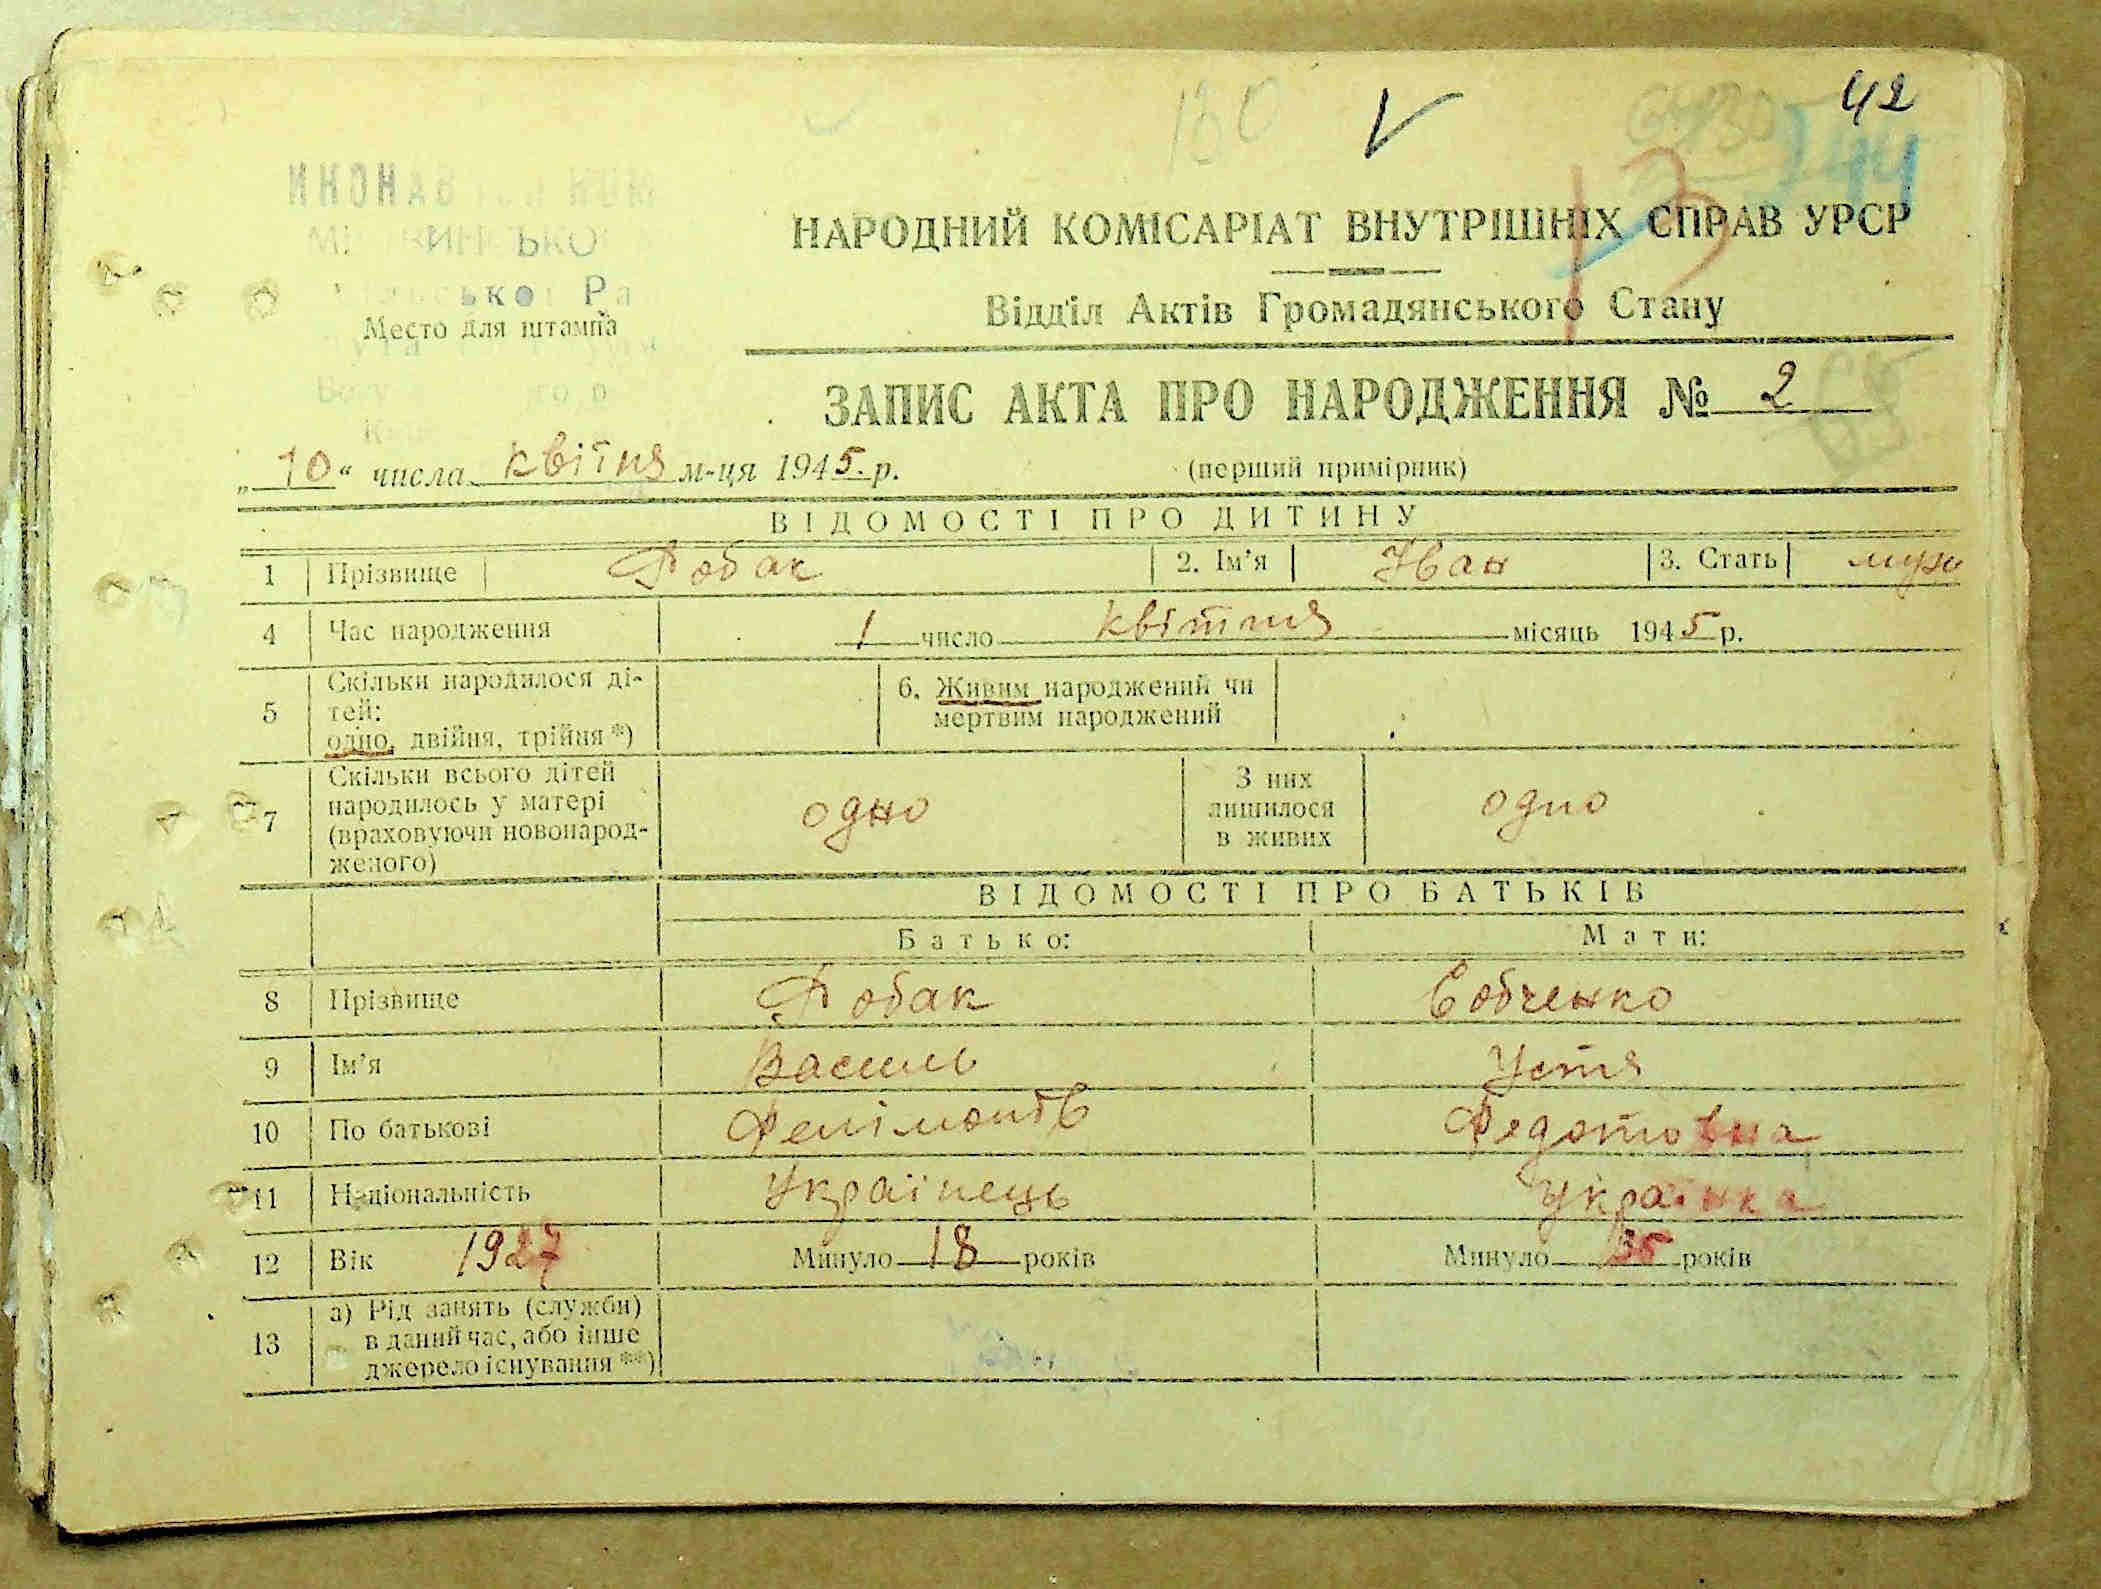 130
42
144
13
НАРОДНИЙ КОМІСАРІАТ ВНУТРІШНІХ СПРАВ УРСР
Відділ Актів Громадянського Стану
Место для штампа
ЗАПИС АКТА ПРО НАРОДЖЕННЯ № 2
„10“ числа квітня м-ця 1945 р. (перший примірник)
ВІДОМОСТІ ПРО ДИТИНУ
1 Прізвище Добак 2. Ім’я Іван 3. Стать муж
4 Час народження 1 число квітня місяць 1945 р.
5 Скільки народилося ді-
тей:
одно, двійня, трійня *)
6. Живим народжений чи
мертвим народжений
7 Скільки всього дітей
народилось у матері
(враховуючи новонарод-
женого)
одно
З них
лишилося
в живих
одно
ВІДОМОСТІ ПРО БАТЬКІВ
Батько: Мати:
8 Прізвище Добак Собченко
9 Ім’я Василь Устя
10 По батькові Федотовна
11 Національність Українець Українка
12 Вік 1927 Минуло 18 років Минуло 35 років
13 а) Рід занять (служби)
в даний час, або інше
джерело існування **)